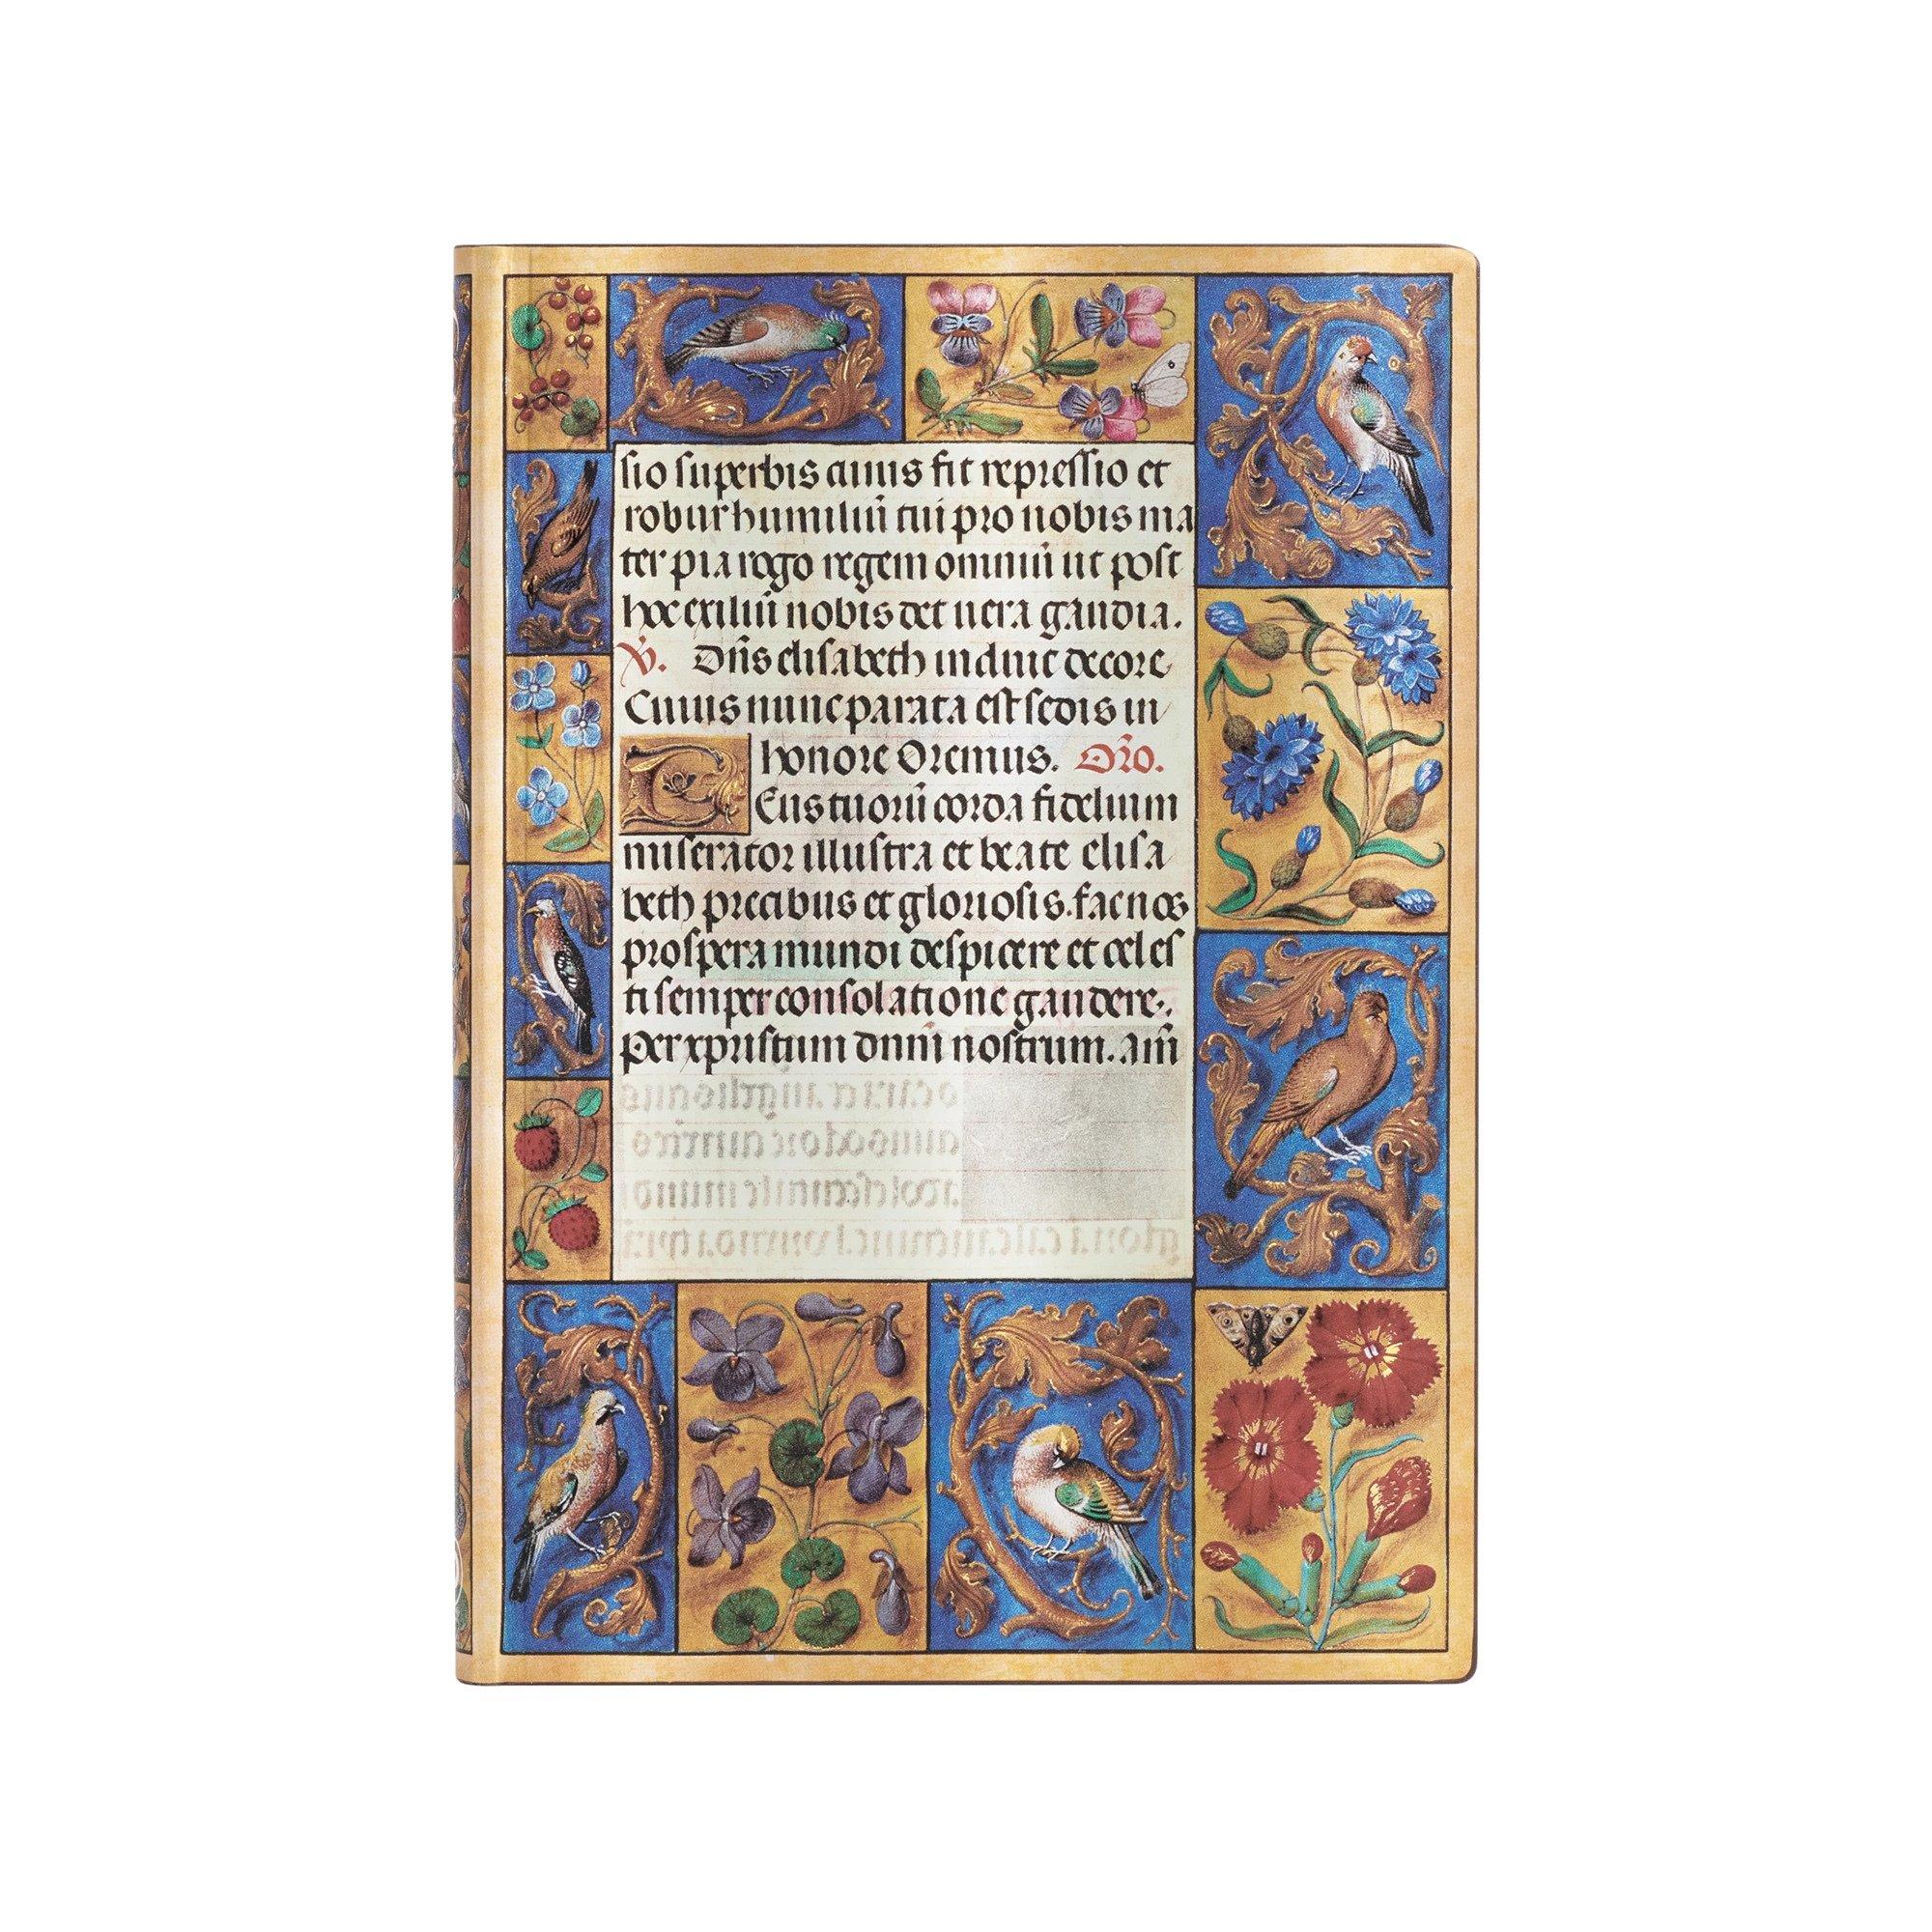 sio superbis cuius fit repressio et
robur humiliū tui pro nobis ma
ter pia rogo regem omniū ut post
hoc exiliū nobis det uera gaudia.
V̄. Dn̄s elisabeth induit decore
Cuius nunc parata est sedis in
honore Oremus. Or̄o.
Deus tuorū corda fidelium
miserator illustra et beate elisa
beth precibus et gloriosis. fac nos
prospera mundi despicere et celes
ti semper consolatione gaudere.
Per xpristum dnm̄ nostrum. am̄